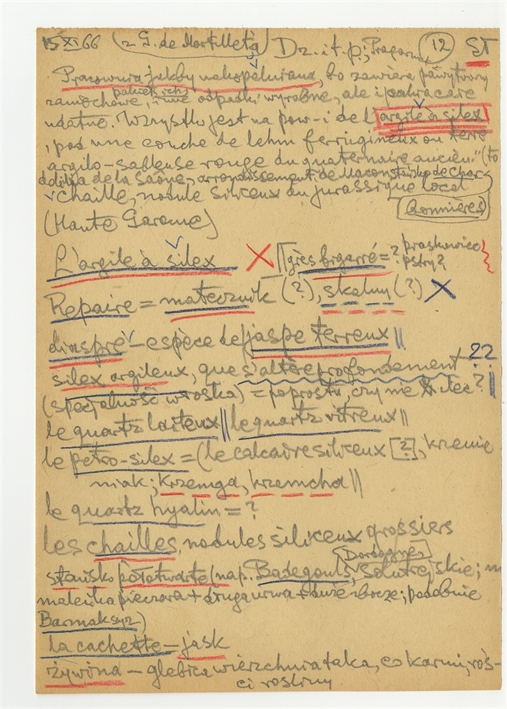 15 XI 66 (z G. de Mortilleta, Dz. i t. p.; (12) ST
Pracownia jakby niekopalniana, bo zawiera
pakiet rdzy
odpadki wyrobne, ale i całe
udatne. Wszystko jest na pow-i de l'argile à silex
, pod une couche de lehm ferrugineux ou terre
argilo-sableuse rouge du quaternaire ancien" (to
de la Saône, arrondissement de Macon
chaille, nodule siliceux du jurassique local
(Haute Garonne) Bonnières
L'argile à silex X || grès bigarré = ? piaskowiec
pstry?
Repaire = matecznik (?), skalny (?) X
diaspre - espèce de jaspe terreux ||
silex argileux, que s'altère profondement + ??
(specjalność włoska) = poprostu, czy nie ?
le quartz laiteux || le quartz vitreux ||
le petro-silex = (le calcaire siliceux [?], krzemie
niak; krzemga, krzemcha ||
le quartz hyalin = ?
les chailles, nodules siliceux grossiers
Dordogne
stanisko półotwarte (nap. Badegouls, Solutrejskie; m
maleńka pieczara + druga + duże zbocze; podobnie
la cachette - jask
żywina - glebica wierzchnia taka, co karmi, roś-
ci rośliny